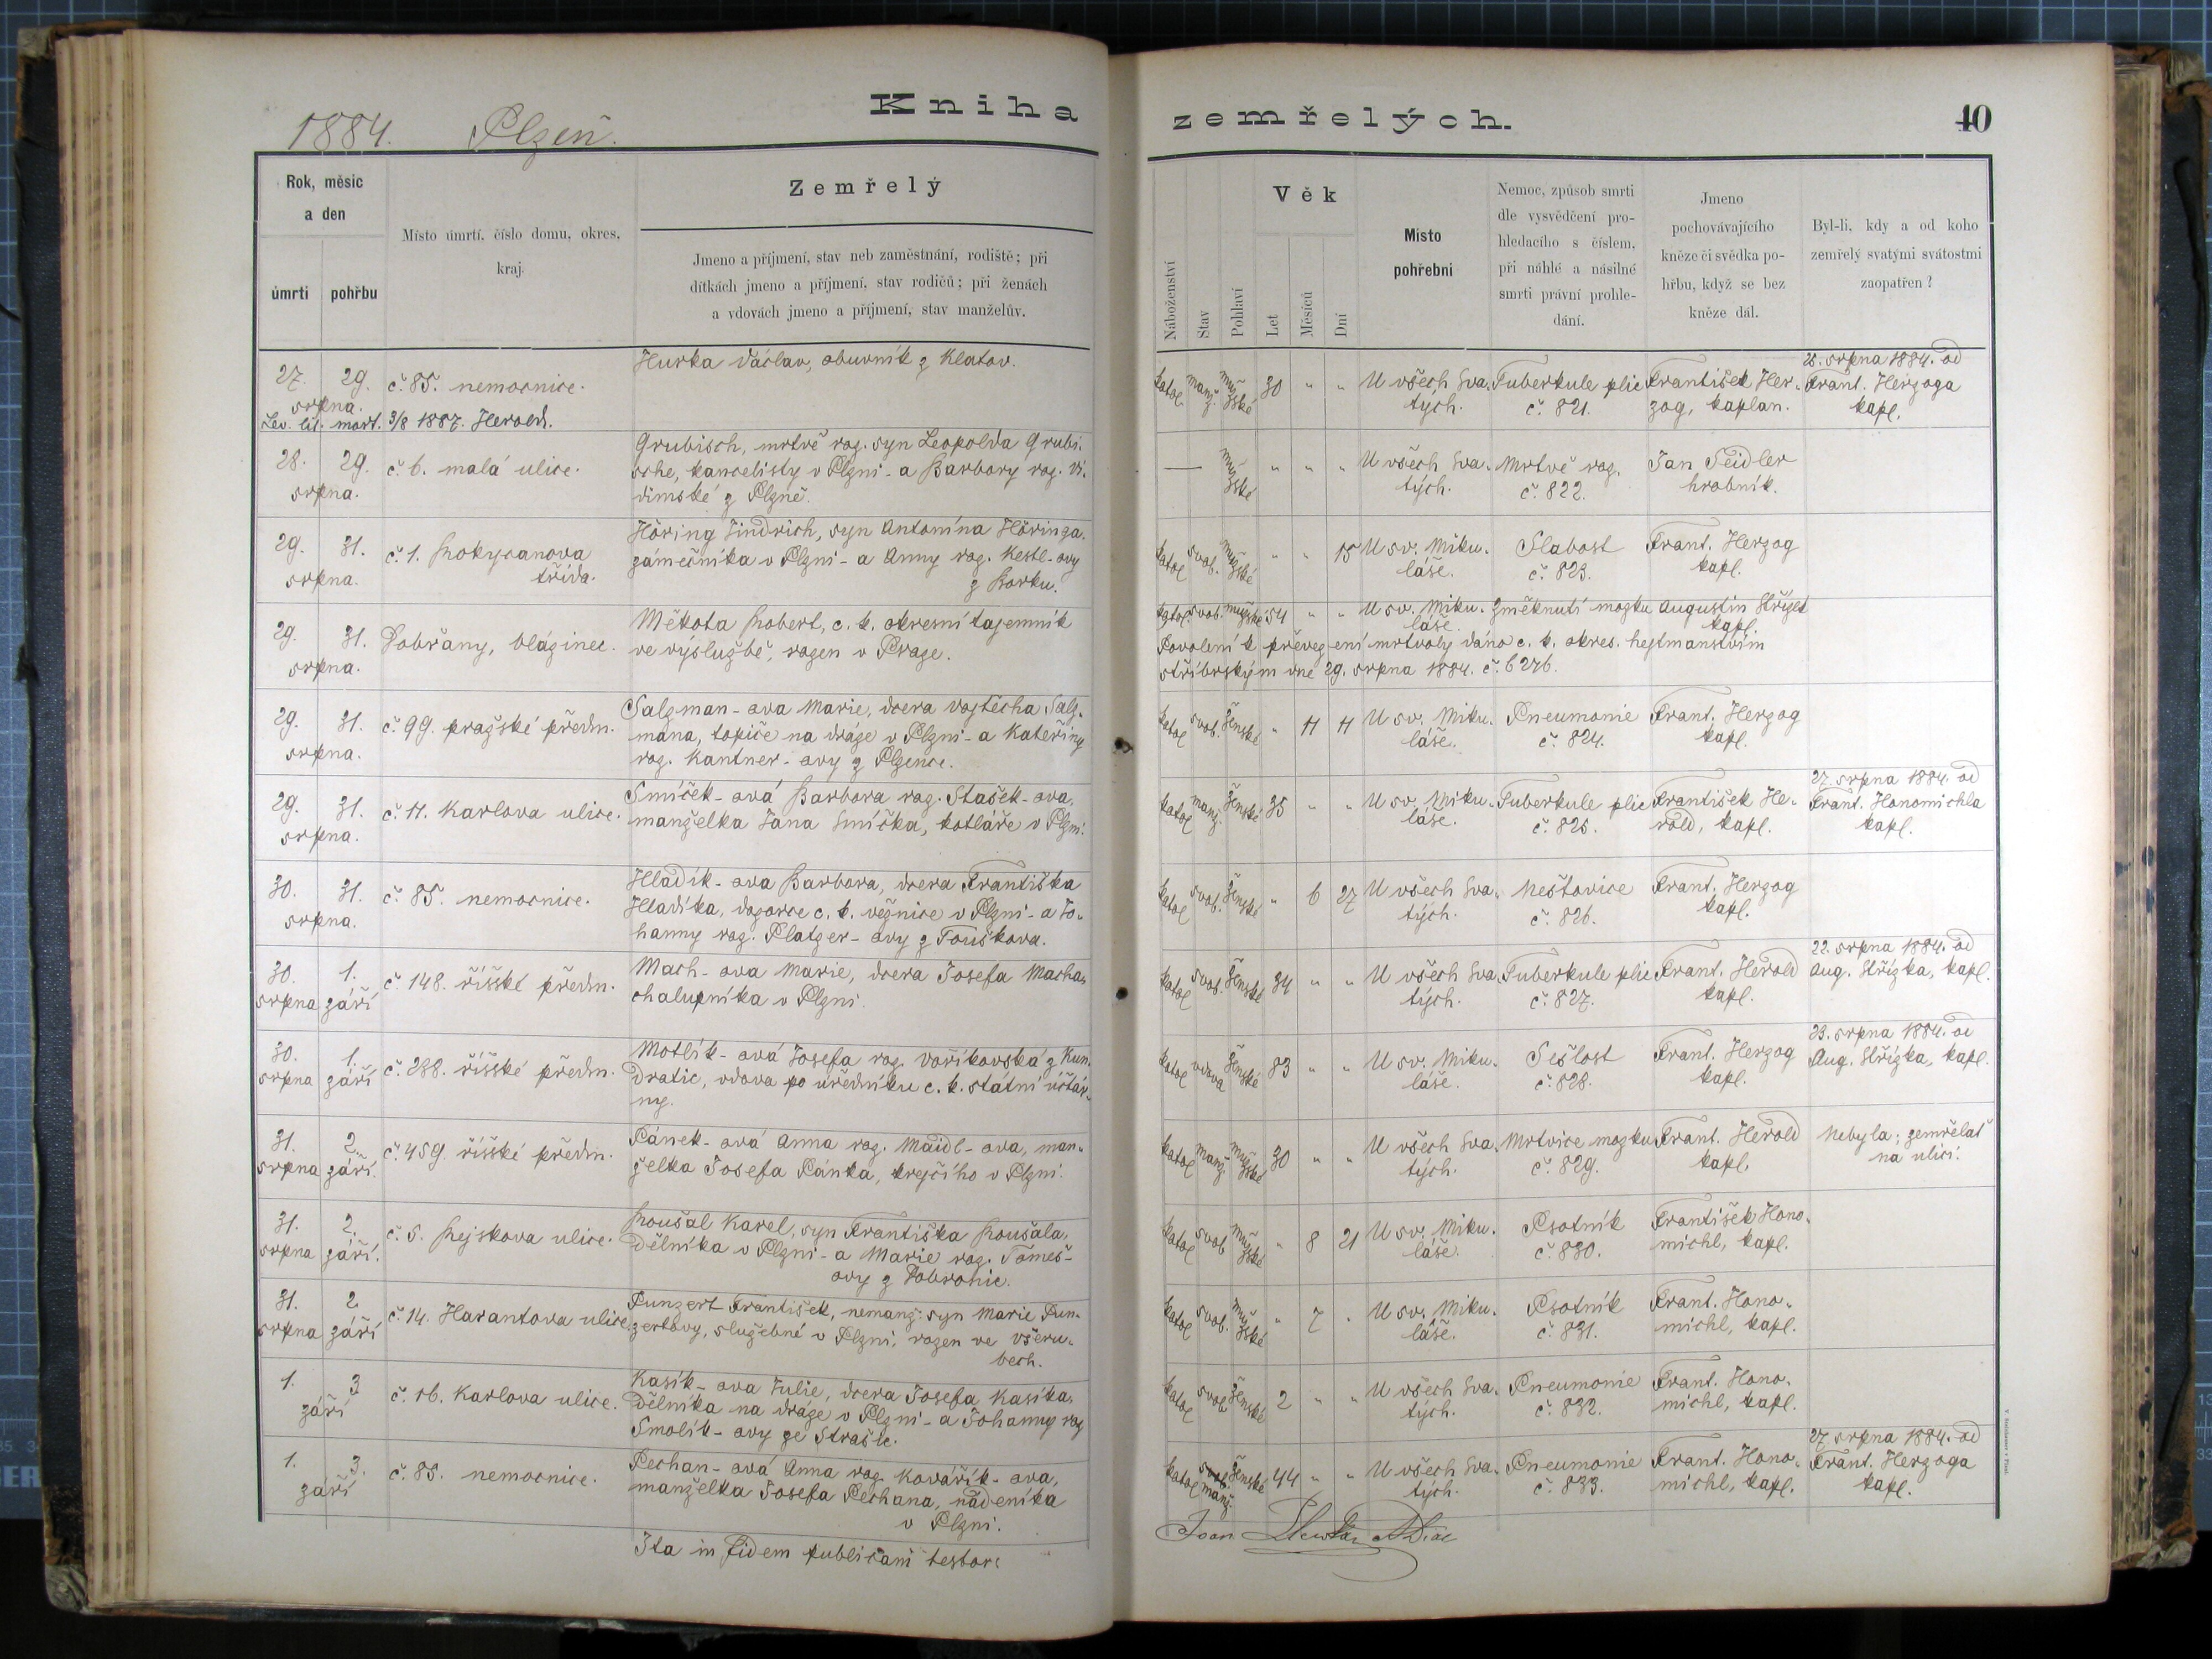 1884. Plzeň.
Kniha
zemřelých.
40
Rok, měsíc
a den
úmrtí
pohřbu
Místo úmrtí, číslo domu, okres,
kraj.
Zemřelý
Jmeno a příjmení, stav neb zaměstnání, rodiště; při
dítkách jmeno a příjmení, stav rodičů; při ženách
a vdovách jmeno a příjmení, stav manželův.
Náboženství
Stav
Pohlaví
Věk
Let
Měsíců
Dní
Místo
pohřební
Nemoc, způsob smrti
dle vysvědčení pro-
hledacího s číslem,
při náhlé a násilné
smrti právní prohle-
dání.
Jmeno
pochovávajícího
kněze či svědka po-
hřbu, když se bez
kněze dál.
Byl-li, kdy a od koho
zemřelý svatými svátostmi
zaopatřen?
27. 29.
srpna.
č. 85. nemocnice.
Lev. lit. mort. 3/8 1887. Herold.
Hurka Václav, obuvník z Klatov.
katol manž. muž-
ské 30 " "
U všech Sva-
tých.
Tuberkule plic
č. 821.
František Her-
zog, kaplan.
25. srpna 1884. od
Frant. Herzoga
kapl.
28. 29.
srpna.
č. 6. malá ulice.
Grubisch, mrtvě roz. syn Leopolda Grubi-
sche, kancelisty v Plzni - a Barbory roz. Vi-
dimské z Plzně.
— muž-
ské " " "
U všech Sva-
tých.
Mrtvě roz.
č. 822.
Jan Seidler
hrobník.
29. 31.
srpna.
č. 1. Rokycanova
třída.
Höring Jindřich, syn Antonína Höringa,
zámečníka v Plzni - a Anny roz. Kestl-ovy
z Borku.
katol svob. muž-
ské " " 15
U sv. Miku-
láše.
Slabost
č. 823.
Frant. Herzog
kapl.
29. 31.
srpna.
Dobřany, blázinec.
Měkota Robert, c. k. okresní tajemník
ve výslužbě, rozen v Praze.
katol. svob. mužské 54 " "
U sv. Miku-
láše.
Změknutí mozku
Augustin Střízek
kapl.
Povolení k převezení mrtvoly dáno c. k. okres. hejtmanstvím
stříbrským dne 29. srpna 1884. č. 6276.
29. 31.
srpna.
č. 99. pražské předm.
Salzman-ova Marie, dcera Vojtěcha Salz-
mana, topiče na dráze v Plzni - a Kateřiny
roz. Kantner-ovy z Plzence.
katol svob. ženské " 11 11
U sv. Miku-
láše.
Pneumonie
č. 824.
Frant. Herzog
kapl.
29. 31.
srpna.
č. 11. Karlova ulice.
Smíček-ová Barbora roz. Stašek-ova,
manželka Jana Smíčka, kotláře v Plzni.
katol manž. ženské 35 " "
U sv. Miku-
láše.
Tuberkule plic
č. 825.
František He-
rold, kapl.
27. srpna 1884. od
Frant. Honomichla
kapl.
30. 31.
srpna.
č. 85. nemocnice.
Hladík-ova Barbora, dcera Františka
Hladíka, dozorce c. k. věznice v Plzni - a Jo-
hanny roz. Platzer-ovy z Touškova.
katol svob. ženské " 6 27
U všech Sva-
tých.
Neštovice
č. 826.
Frant. Herzog
kapl.
30. 1.
srpna září
č. 148. říšské předm.
Mach-ova Marie, dcera Josefa Macha,
chalupníka v Plzni.
katol svob. ženské 34 " "
U všech Sva-
tých.
Tuberkule plic
č. 827.
Frant. Herold
kapl.
22. srpna 1884. od
Aug. Střízka, kapl.
30. 1.
srpna září
č. 288. říšské předm.
Motlík-ová Josefa roz. Voříkovská z Kun-
dratic, vdova po úředníku c. k. státní účtár-
ny.
katol vdova ženské 83 " "
U sv. Miku-
láše.
Sešlost
č. 828.
Frant. Herzog
kapl.
23. srpna 1884. od
Aug. Střízka, kapl.
31. 2.
srpna září.
č. 459. říšské předm.
Pánek-ová Anna roz. Maidl-ova, man-
želka Josefa Pánka, krejčího v Plzni.
katol manž mužské 30 " "
U všech Sva-
tých.
Mrtvice mozku
č. 829.
Frant. Herold
kapl.
Nebyla; zemřelať
na ulici.
31. 2.
srpna září.
č. 5. Rejskova ulice.
Roušal Karel, syn Františka Roušala,
dělníka v Plzni - a Marie roz. Tomeš-
ovy z Dobronic.
katol svob muž-
ské " 8 21
U sv. Miku-
láše.
Psotník
č. 830.
František Hono-
michl, kapl.
31. 2
srpna září
č. 14. Harantova ulice.
Punzert František, nemanž. syn Marie Pun-
zertovy, služebné v Plzni, rozen ve Všeru-
bech.
katol svob. muž-
ské " 7 "
U sv. Miku-
láše.
Psotník
č. 831.
Frant. Hono-
michl, kapl.
1. 3
září
č. 16. Karlova ulice.
Kasík-ova Julie, dcera Josefa Kasíka,
dělníka na dráze v Plzni - a Johanny roz
Smolík-ovy ze Strašic.
katol svob ženské 2 " "
U všech Sva-
tých.
Pneumonie
č. 832.
Frant. Hono-
michl, kapl.
1. 3.
září
č. 85. nemocnice.
Pechan-ová Anna roz. Kovářík-ova,
manželka Josefa Pechana, nádeníka
v Plzni.
katol svob. manž ženské 44 " "
U všech Sva-
tých.
Pneumonie
č. 833.
Frant. Hono-
michl, kapl.
27 srpna 1884. od
Frant. Herzoga
kapl.
Ita in fidem publicam testor:
Joan